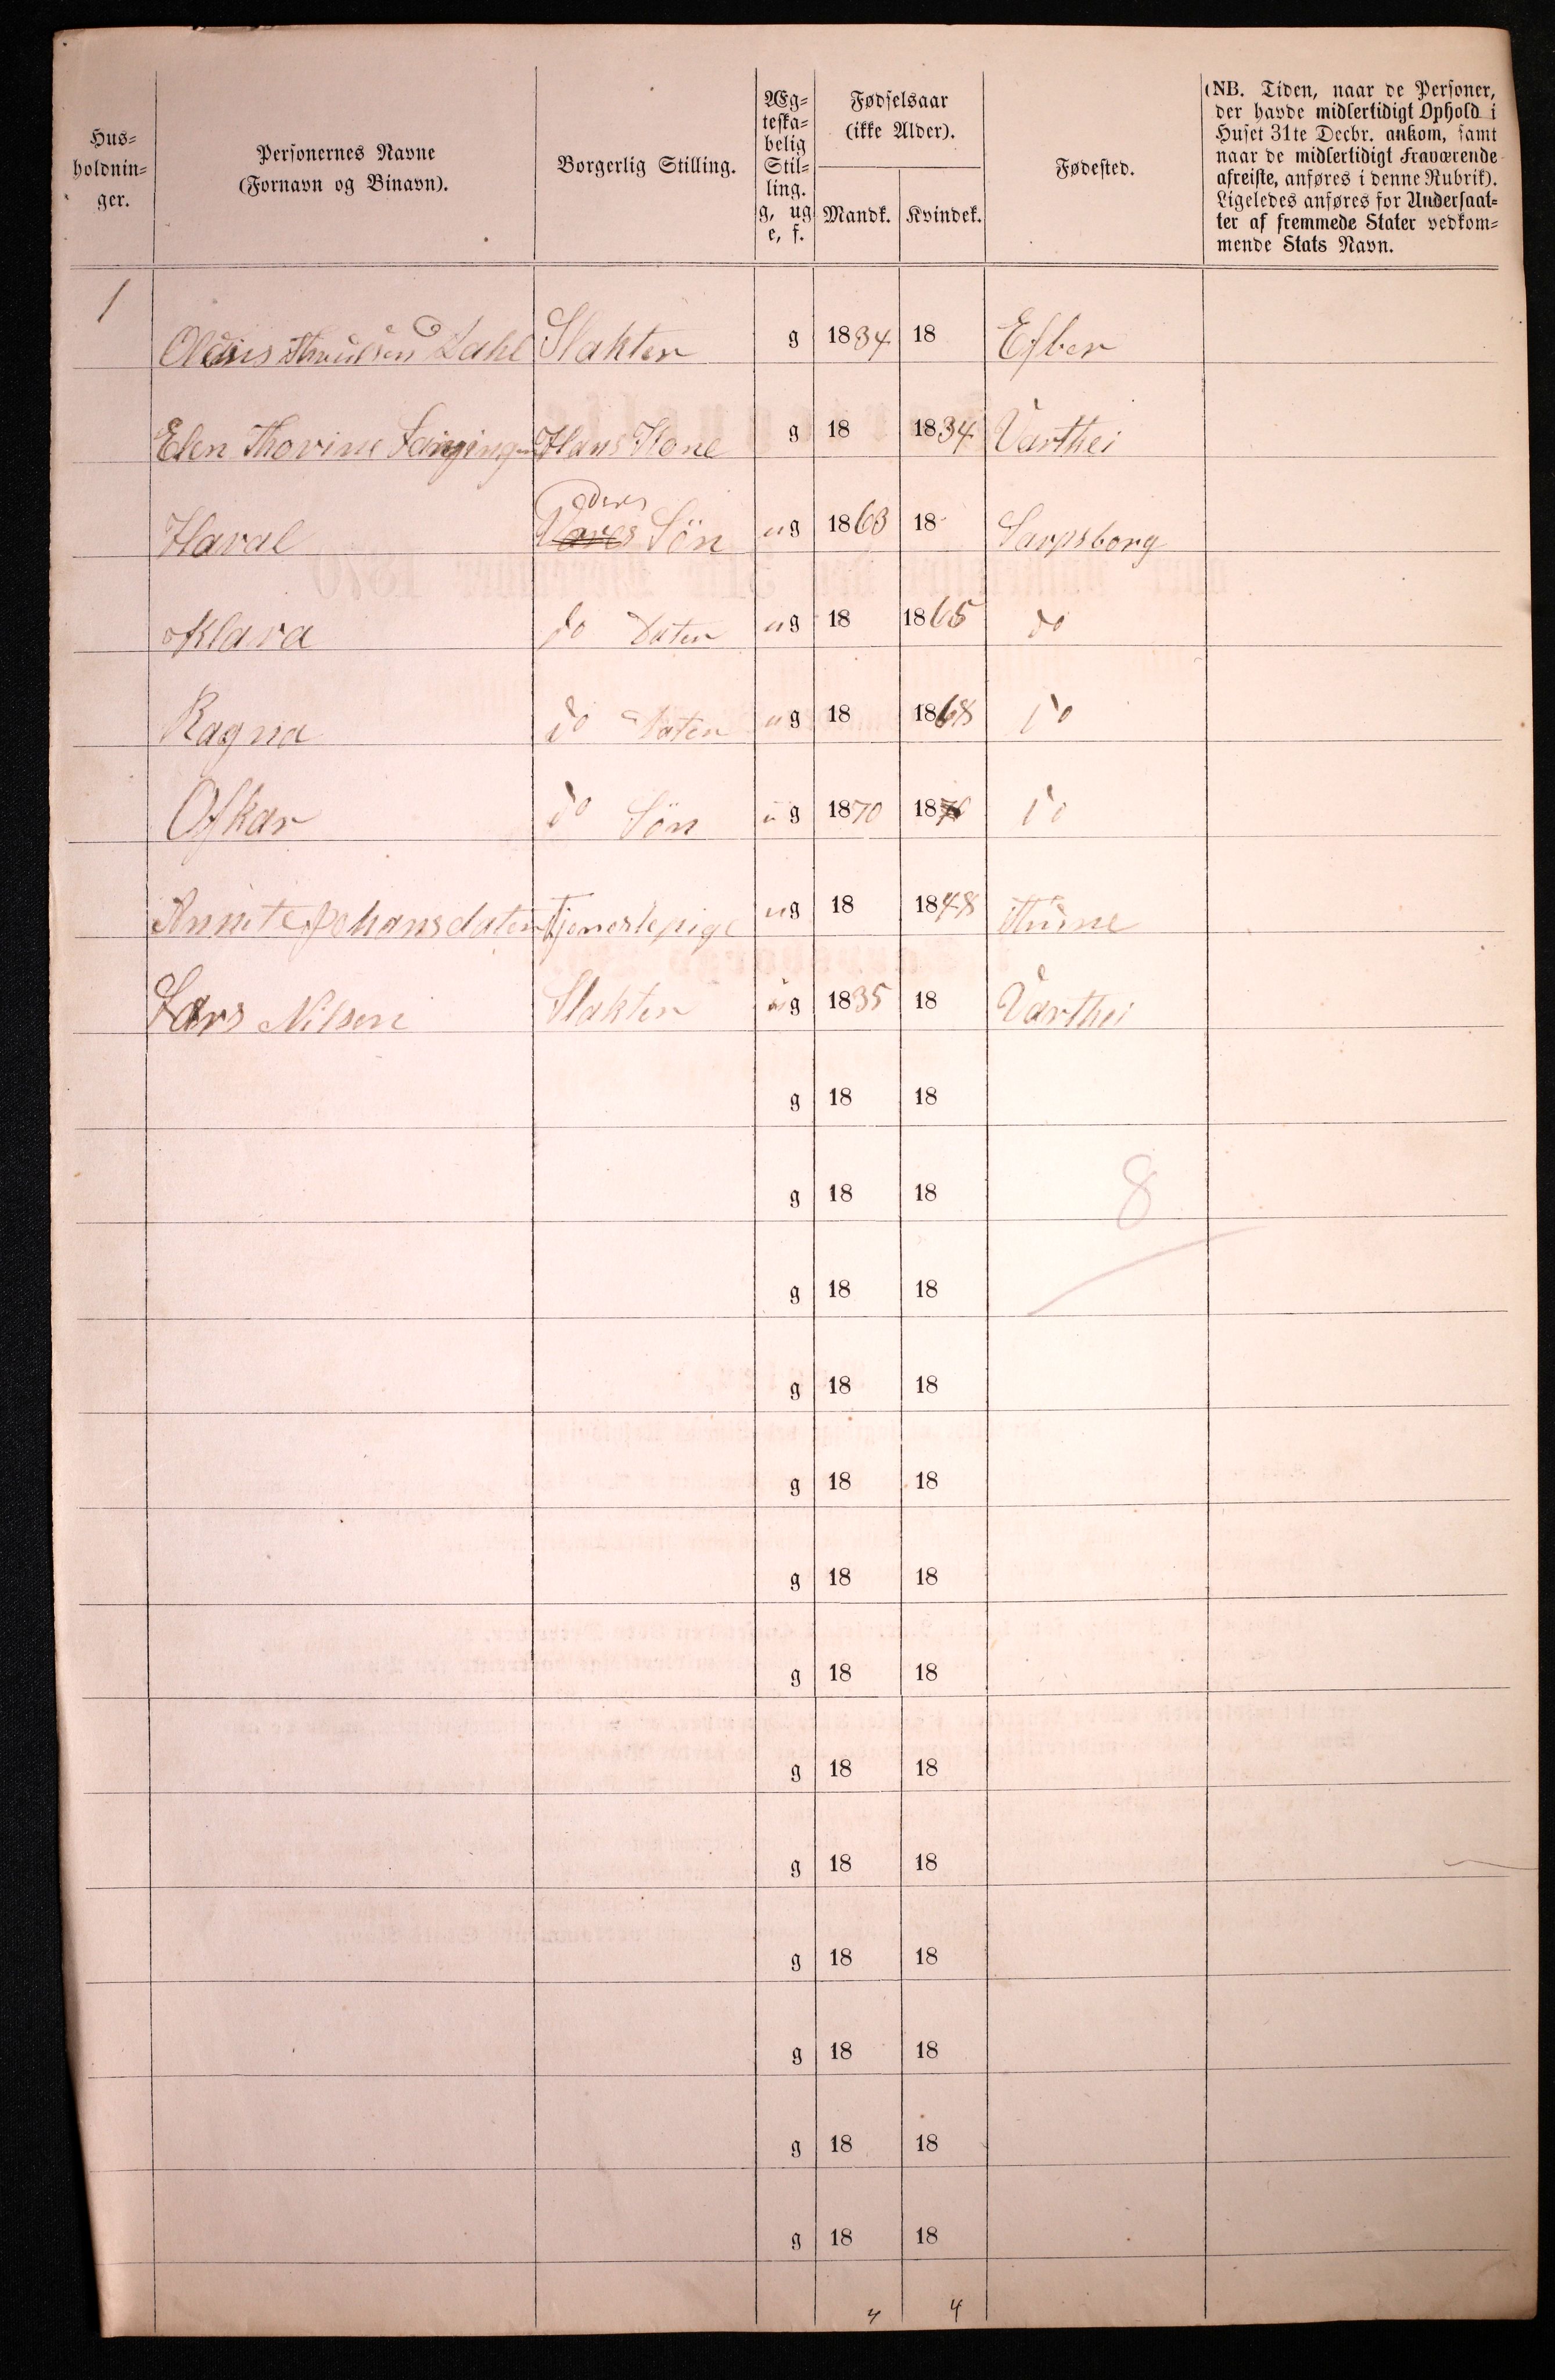 Hus-
holdnin-
ger.
Personernes Navne
(Fornavn og Binavn).
Borgerlig Stilling.
Æg-
teska-
belig
Stil-
ling.
g, ug
e, f.
Fødselsaar
(ikke Alder).
Mandk. Kvindek.
Fødested.
(NB. Tiden, naar de Personer,
der havde midlertidigt Ophold i
Huset 31te Decbr. ankom, samt
naar de midlertidigt Fraværende
afreiste, anføres i denne Rubrik).
Ligeledes anføres for Undersaat-
ter af fremmede Stater vedkom-
mende Stats Navn.
1
Dahl Slakter g 1834 18
Elen Thorine Hans Kone g 18 1834 Varthei
deres
Haral Vores Sön ug 1863 18 Sarpsborg
Klara do Dater ug 18 1865 do
Ragna do Dater ug 18 1868 do
Oskar do Sön ug 1870 1870 do
Annite Johansdater Tjenestepige ug 18 1848 Thune
Lars Nilsen Slakter ug 1835 18 Varthei
g 18 18
g 18 18
8
g 18 18
g 18 18
g 18 18
g 18 18
g 18 18
g 18 18
g 18 18
g 18 18
g 18 18
g 18 18
g 18 18
4 4